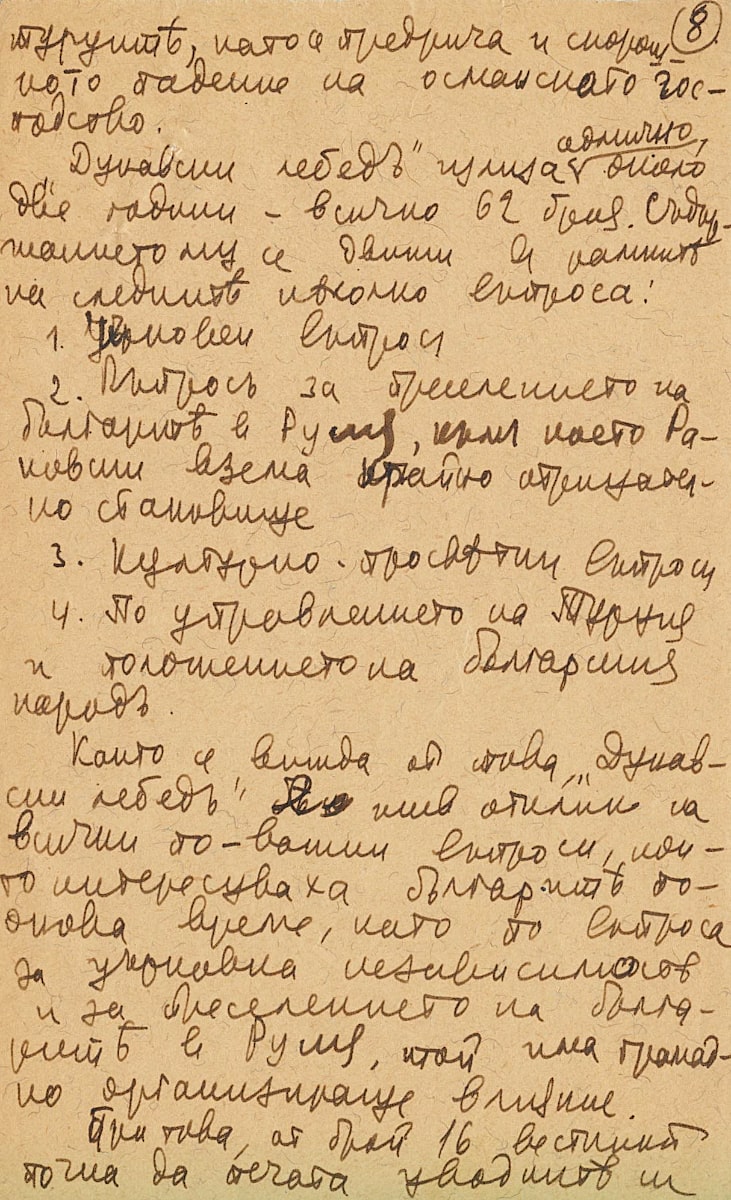 8
турцитѣ, като се предрича и скорош-
ното падение на османското гос-
подство.
„Дунавски лебедъ“ излиза седмично, около
двѣ години – всичко 62 броя. Съдър-
жанието му се движи в рамкитѣ
на следнитѣ нѣколко въпроса:
1. Църковен въпрос
2. Въпросъ за преселението на
българитѣ в Русия, към което Ра-
ковски взема крайно отрицател-
но становище
3. Културно-просвѣтни въпроси
4. По управлението на Турция
и положението на българския
народъ.
Както се вижда от това, „Дунав-
ски лебедъ“ е живъ отклик на
всички по-важни въпроси, кои-
то интересуваха българитѣ по-
онова време, като по въпроса
за църковна независимость
и за преселението на бълга-
ритѣ в Русия, той има громад-
но организиращо влияние.
При това, от брой 16 вестникът
почна да печата уводнитѣ си